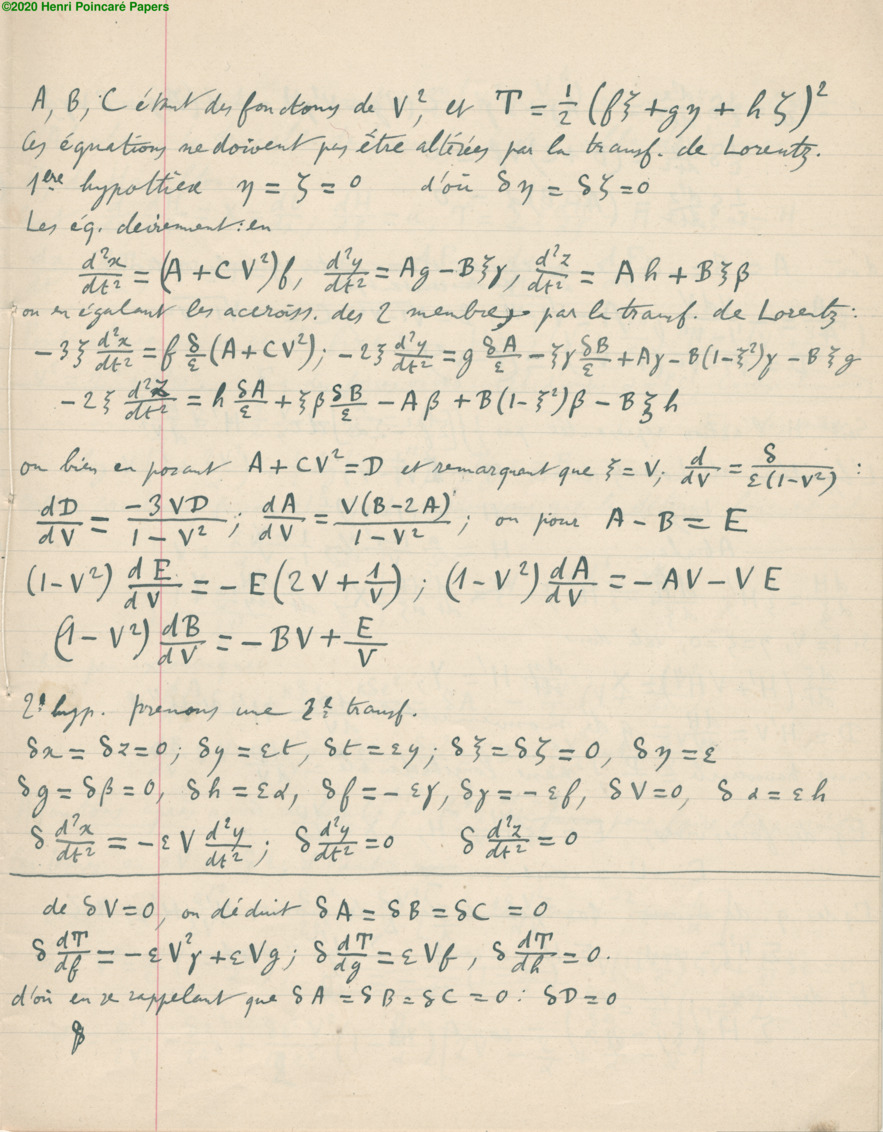 ©2020 Henri Poincaré Papers
A, B, C étant des fonctions de V², et T = 1/2 (fξ + gη + hζ)²
Ces équations ne doivent pas être altérées par la transf. de Lorentz.
1ère hypothèse η = ζ = 0 d'où δη = δζ = 0
Les éq. deviennent : en
d²x/dt² = (A + CV²)f, d²y/dt² = Ag − Bξγ, d²z/dt² = Ah + Bξβ
ou en égalant les accroiss. des 2 membres par la transf. de Lorentz :
−3ξ d²x/dt² = f δ/ε (A + CV²); −2ξ d²y/dt² = g δA/ε − ξγ δB/ε + Aγ − B(1−ξ²)γ − Bξg
−2ξ d²z/dt² = h δA/ε + ξβ δB/ε − Aβ + B(1−ξ²)β − Bξh
ou bien en posant A + CV² = D et remarquant que ξ = V, d/dV = δ/ε(1−V²) :
dD/dV = −3VD/1−V² ; dA/dV = V(B−2A)/1−V² ; ou pour A − B = E
(1−V²) dE/dV = −E(2V + 1/V) ; (1−V²) dA/dV = −AV − VE
(1−V²) dB/dV = −BV + E/V
2e hyp. prenons une 2e transf.
δx = δz = 0 ; δy = εt, δt = εy ; δξ = δζ = 0, δη = ε
δg = δβ = 0, δh = εα, δf = −εγ, δγ = −εf, δV = 0, δα = εh
δ d²x/dt² = −εV d²y/dt² ; δ d²y/dt² = 0 δ d²z/dt² = 0
de δV = 0, on déduit δA = δB = δC = 0
δ dT/df = −εV²γ + εVg ; δ dT/dg = εVf, δ dT/dh = 0.
d'où en se rappelant que δA = δB = δC = 0 : δD = 0